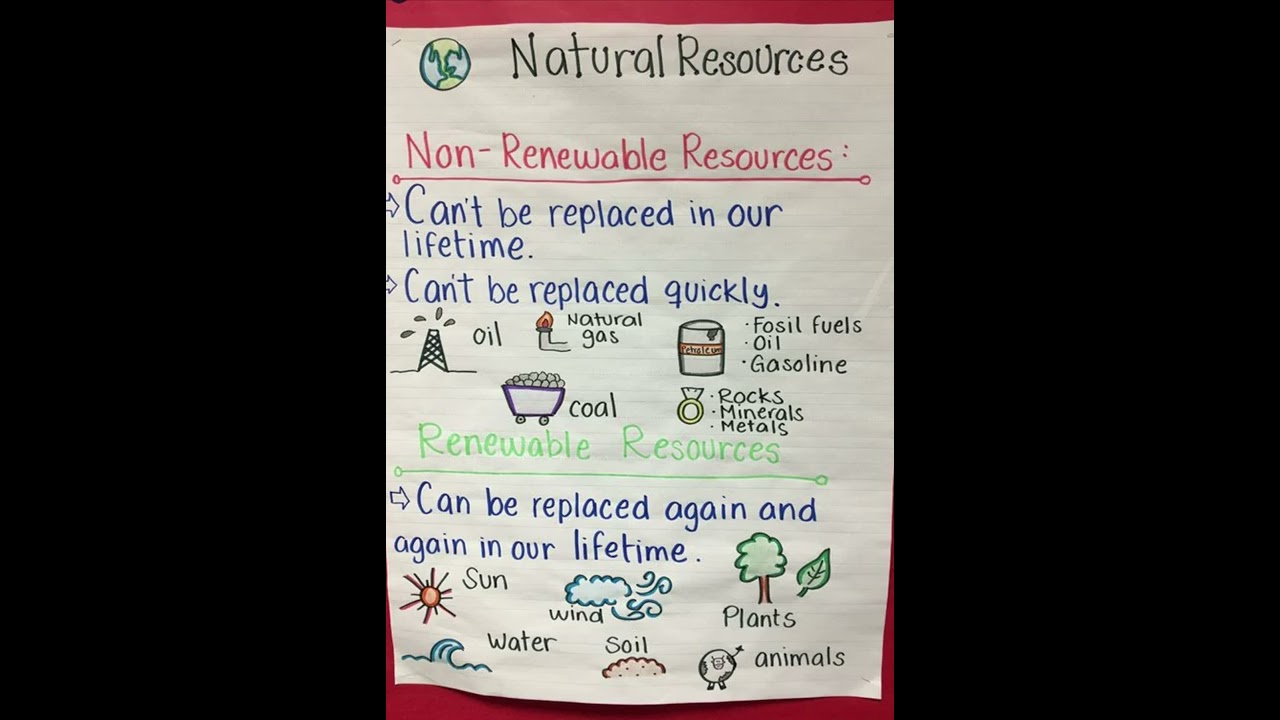 Natural Resources
Non-Renewable Resources:
⇨ Can't be replaced in our
lifetime.
⇨ Can't be replaced quickly.
oil
Natural
gas
Petroleum
· Fosil fuels
· Oil
· Gasoline
coal
· Rocks
· Minerals
· Metals
Renewable Resources
⇨ Can be replaced again and
again in our lifetime.
Sun
wind
Plants
water
Soil
animals